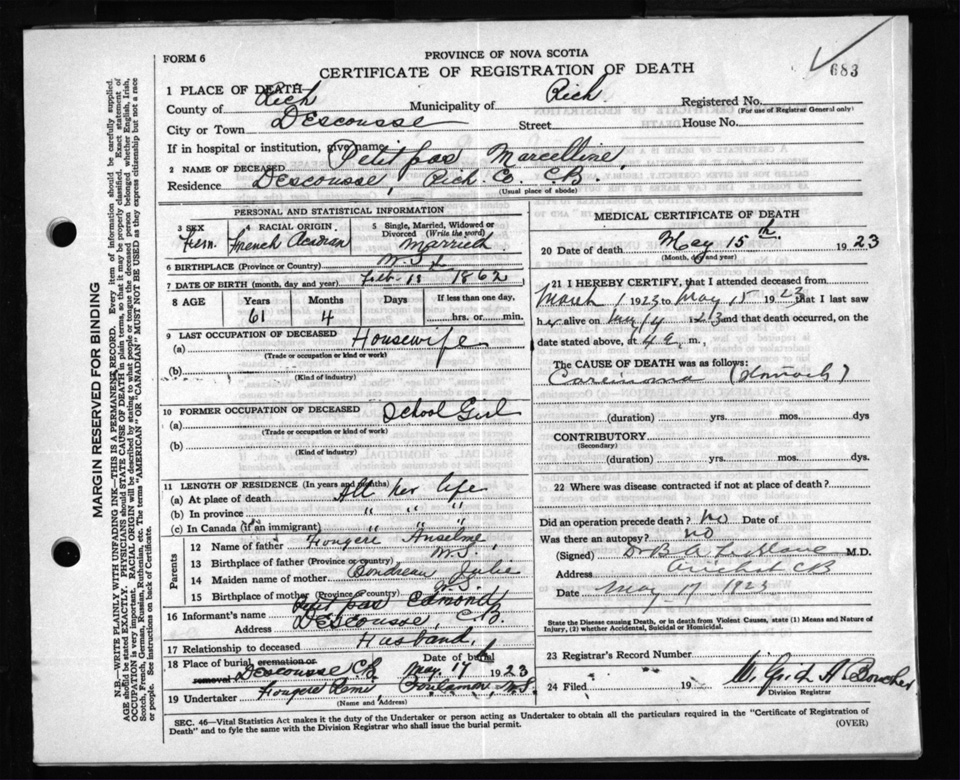 683
FORM 6
PROVINCE OF NOVA SCOTIA
CERTIFICATE OF REGISTRATION OF DEATH
1 PLACE OF DEATH
County of Rich Municipality of Rich Registered No.
(For use of Registrar General only)
City or Town Descousse Street House No.
If in hospital or institution, give name
2 NAME OF DECEASED Petit pas Marcelline
Residence Descousse, Rich. Co. C.B
(Usual place of abode)
PERSONAL AND STATISTICAL INFORMATION
3 SEX 4 RACIAL ORIGIN 5 Single, Married, Widowed or Divorced (Write the word)
Fem. French Acadian Married
6 BIRTHPLACE (Province or Country) N.S.
7 DATE OF BIRTH (month, day and year) Feb. 13 1862
8 AGE Years Months Days If less than one day,
61 4 hrs. or min.
9 LAST OCCUPATION OF DECEASED Housewife
(a)
(Trade or occupation or kind or work)
(b)
(Kind of industry)
10 FORMER OCCUPATION OF DECEASED School Girl
(a)
(Trade or occupation or kind of work)
(b)
(Kind of industry)
11 LENGTH OF RESIDENCE (In years and months)
(a) At place of death All her life
(b) In province " " "
(c) In Canada (if an immigrant) " " "
Parents
12 Name of father Fougere Anselme
13 Birthplace of father (Province or Country) N.S.
14 Maiden name of mother Boudreau Julie
15 Birthplace of mother (Province or Country)
16 Informant's name Petit pas Edmond
Address Descousse, C.B.
17 Relationship to deceased Husband
18 Place of burial, cremation or removal Descousse C.B. Date of burial May 17th 1923
19 Undertaker Fougere Remi Poulamon N.S.
(Name and Address)
MEDICAL CERTIFICATE OF DEATH
20 Date of death May 15th 1923
(Month, day and year)
21 I HEREBY CERTIFY, that I attended deceased from
March 1 1923 to May 15 1923 that I last saw
h alive on May 14 1923 and that death occurred, on
date stated above, at 4 a m.,
The CAUSE OF DEATH was as follows:
Carcinoma (stomach)
(duration) yrs. mos. dys
CONTRIBUTORY
(Secondary)
(duration) yrs. mos. dys.
22 Where was disease contracted if not at place of death?
Did an operation precede death? No Date of
Was there an autopsy? no
(Signed) Dr B A LeBlanc M.D.
Address Arichat CB
Date May 17 1923
State the Disease causing Death, or in death from Violent Causes, state (1) Means and Nature of Injury, (2) whether Accidental, Suicidal or Homicidal.
23 Registrar's Record Number
24 Filed 19 A Boucher
Division Registrar
SEC. 46—Vital Statistics Act makes it the duty of the Undertaker or person acting as Undertaker to obtain all the particulars required in the "Certificate of Registration of
Death" and to fyle the same with the Division Registrar who shall issue the burial permit.
(OVER)
MARGIN RESERVED FOR BINDING
N.B.—WRITE PLAINLY WITH UNFADING INK—THIS IS A PERMANENT RECORD. Every item of information should be carefully supplied.
AGE should be stated EXACTLY. PHYSICIANS should STATE CAUSE OF DEATH in plain terms, so that it may be properly classified. Exact statement of
OCCUPATION is very important. RACIAL ORIGIN will be described by stating to what people or tongue the deceased person belonged, whether English, Irish,
Scotch, French, German, Russian, Ruthenian, etc. The terms "AMERICAN" OR "CANADIAN" MUST NOT BE USED as they express citizenship but not a race
or people. See instructions on back of Certificate.